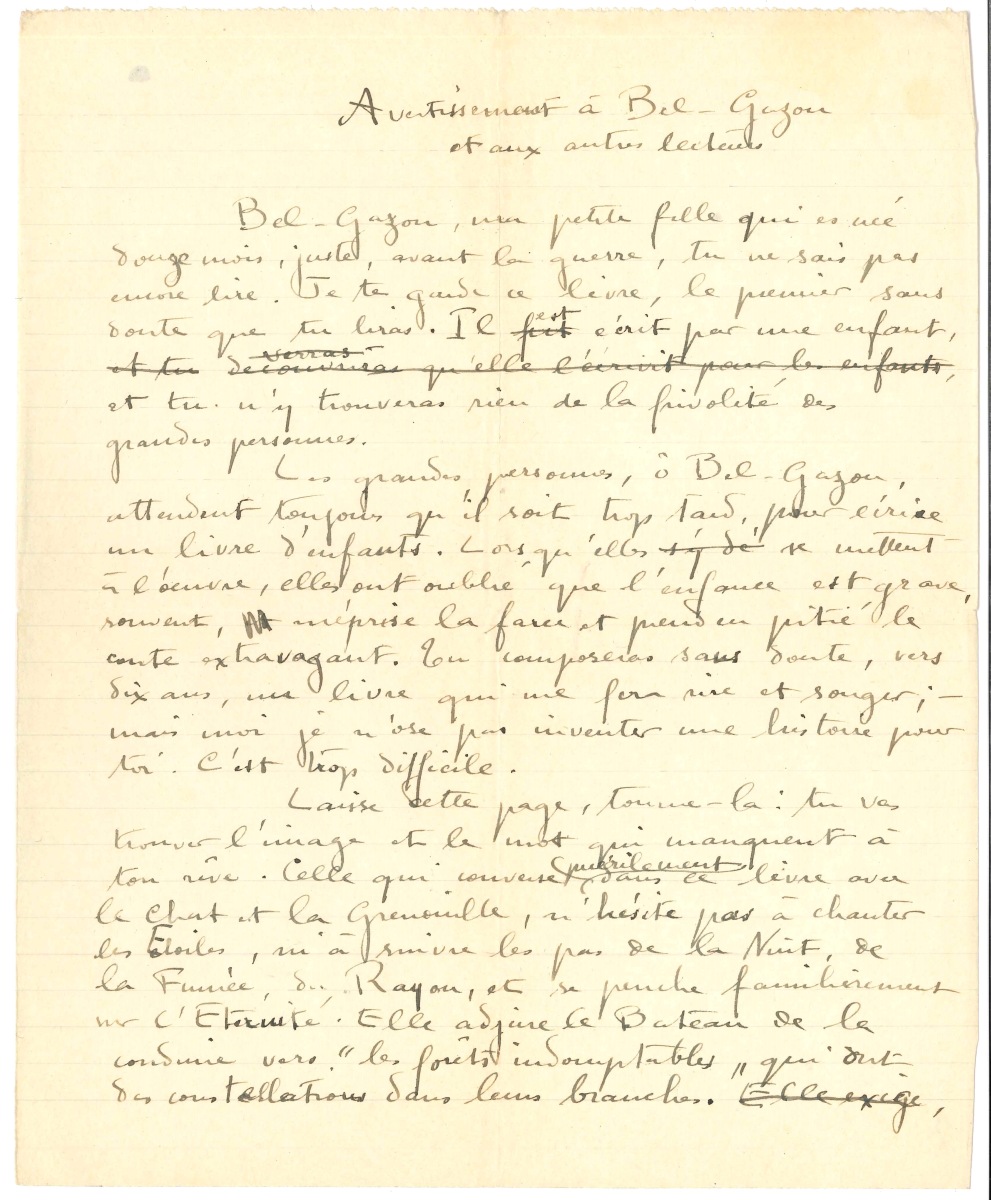 Avertissement à Bel-Gazou
et aux autres lecteurs
Bel-Gazou, ma petite fille qui es née
douze mois, juste, avant la guerre, tu ne sais pas
encore lire. Je te garde ce livre, le premier sans
doute que tu liras. Il fut est écrit par une enfant,
et tu découvriras verras qu'elle l'écrivit pour les enfants,
et tu n'y trouveras rien de la frivolité des
grandes personnes.
Les grandes personnes, ô Bel-Gazou,
attendent toujours qu'il soit trop tard, pour écrire
un livre d'enfants. Lorsqu'elles s'y dé se mettent
à l'œuvre, elles ont oublié que l'enfance est grave,
souvent, méprise la farce et prend en pitié le
conte extravagant. Tu composeras sans doute, vers
dix ans, un livre qui me fera rire et songer ; –
mais moi je n'ose pas inventer une histoire pour
toi. C'est trop difficile.
Laisse cette page, tourne-la : tu vas
trouver l'image et le mot qui manquent à
ton rêve. Celle qui converse puérilement dans ce livre avec
le Chat et la Grenouille, n'hésite pas à chanter
les Etoiles, ni à suivre les pas de la Nuit, de
la Fumée, du Rayon, et se penche familièrement
sur l'Eternité. Elle adjure le Bateau de la
conduire vers "les forêts indomptables" qui ont
des constellations dans leurs branches. Elle exige,